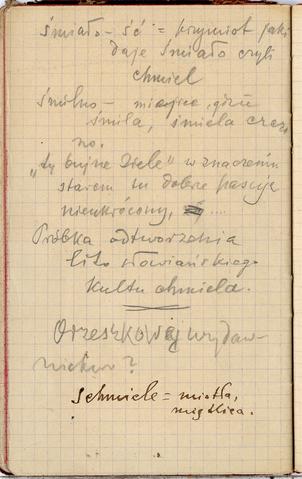 śmiało-ść = przymiot jaki
daje śmiało czyli
chmiel
śmilno - miejsce, gdzie
śmila, śmiela czer
no.
„ty bujne ziele" w znaczeniu
starem tu dobrze pasuje
nieukrócony, ....
Próbka odtworzenia
lito słowiańskiego
kultu chmiela.
Orzeszkowej wydaw-
nictwo?
Schmiele = miotła,
miętlica.